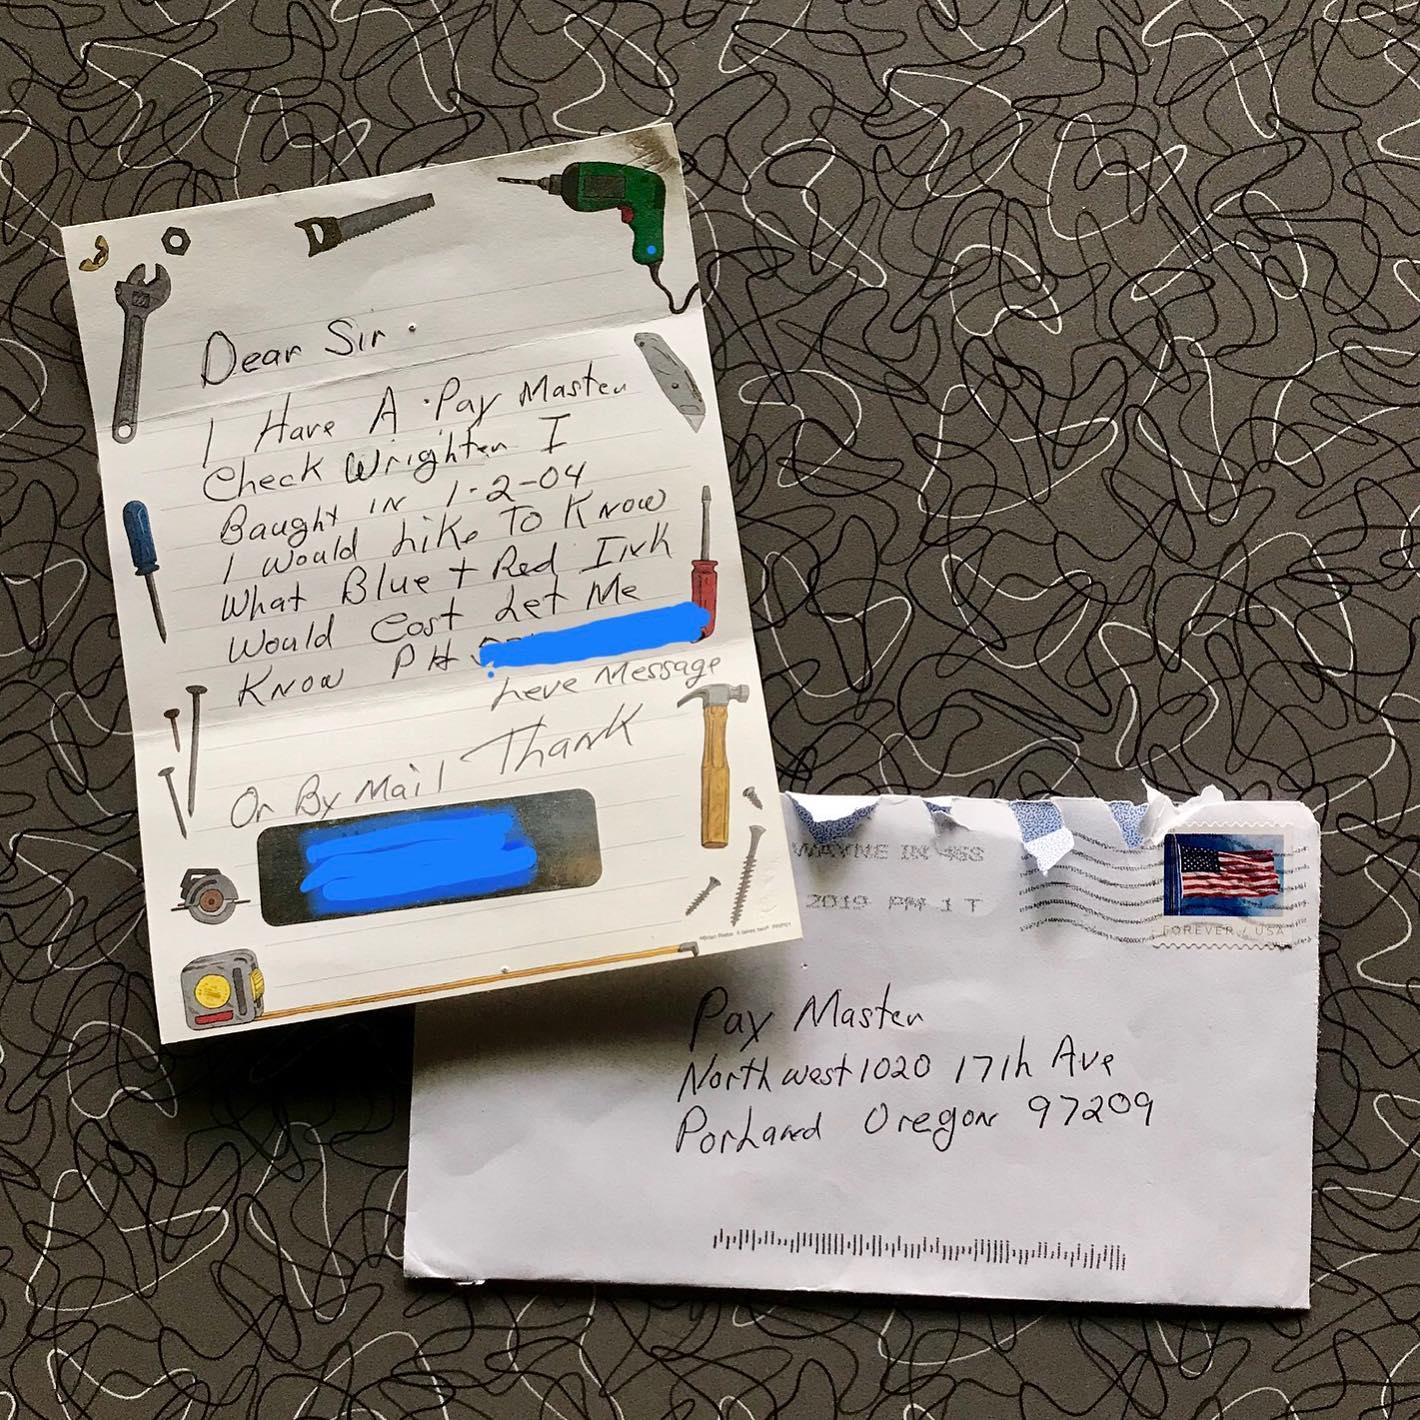 Dear Sir.
I Have A Pay Master
Check Wrighter I
Baught in 1-2-04
I Would Like To Know
What Blue + Red Ink
Would Cost Let Me
Know PH
Leve Message
Thank
Or By Mail
WAYNE IN 468
2019 PM 1 T
FOREVER / USA
Pay Master
Northwest 1020 17th Ave
Portland Oregon 97209